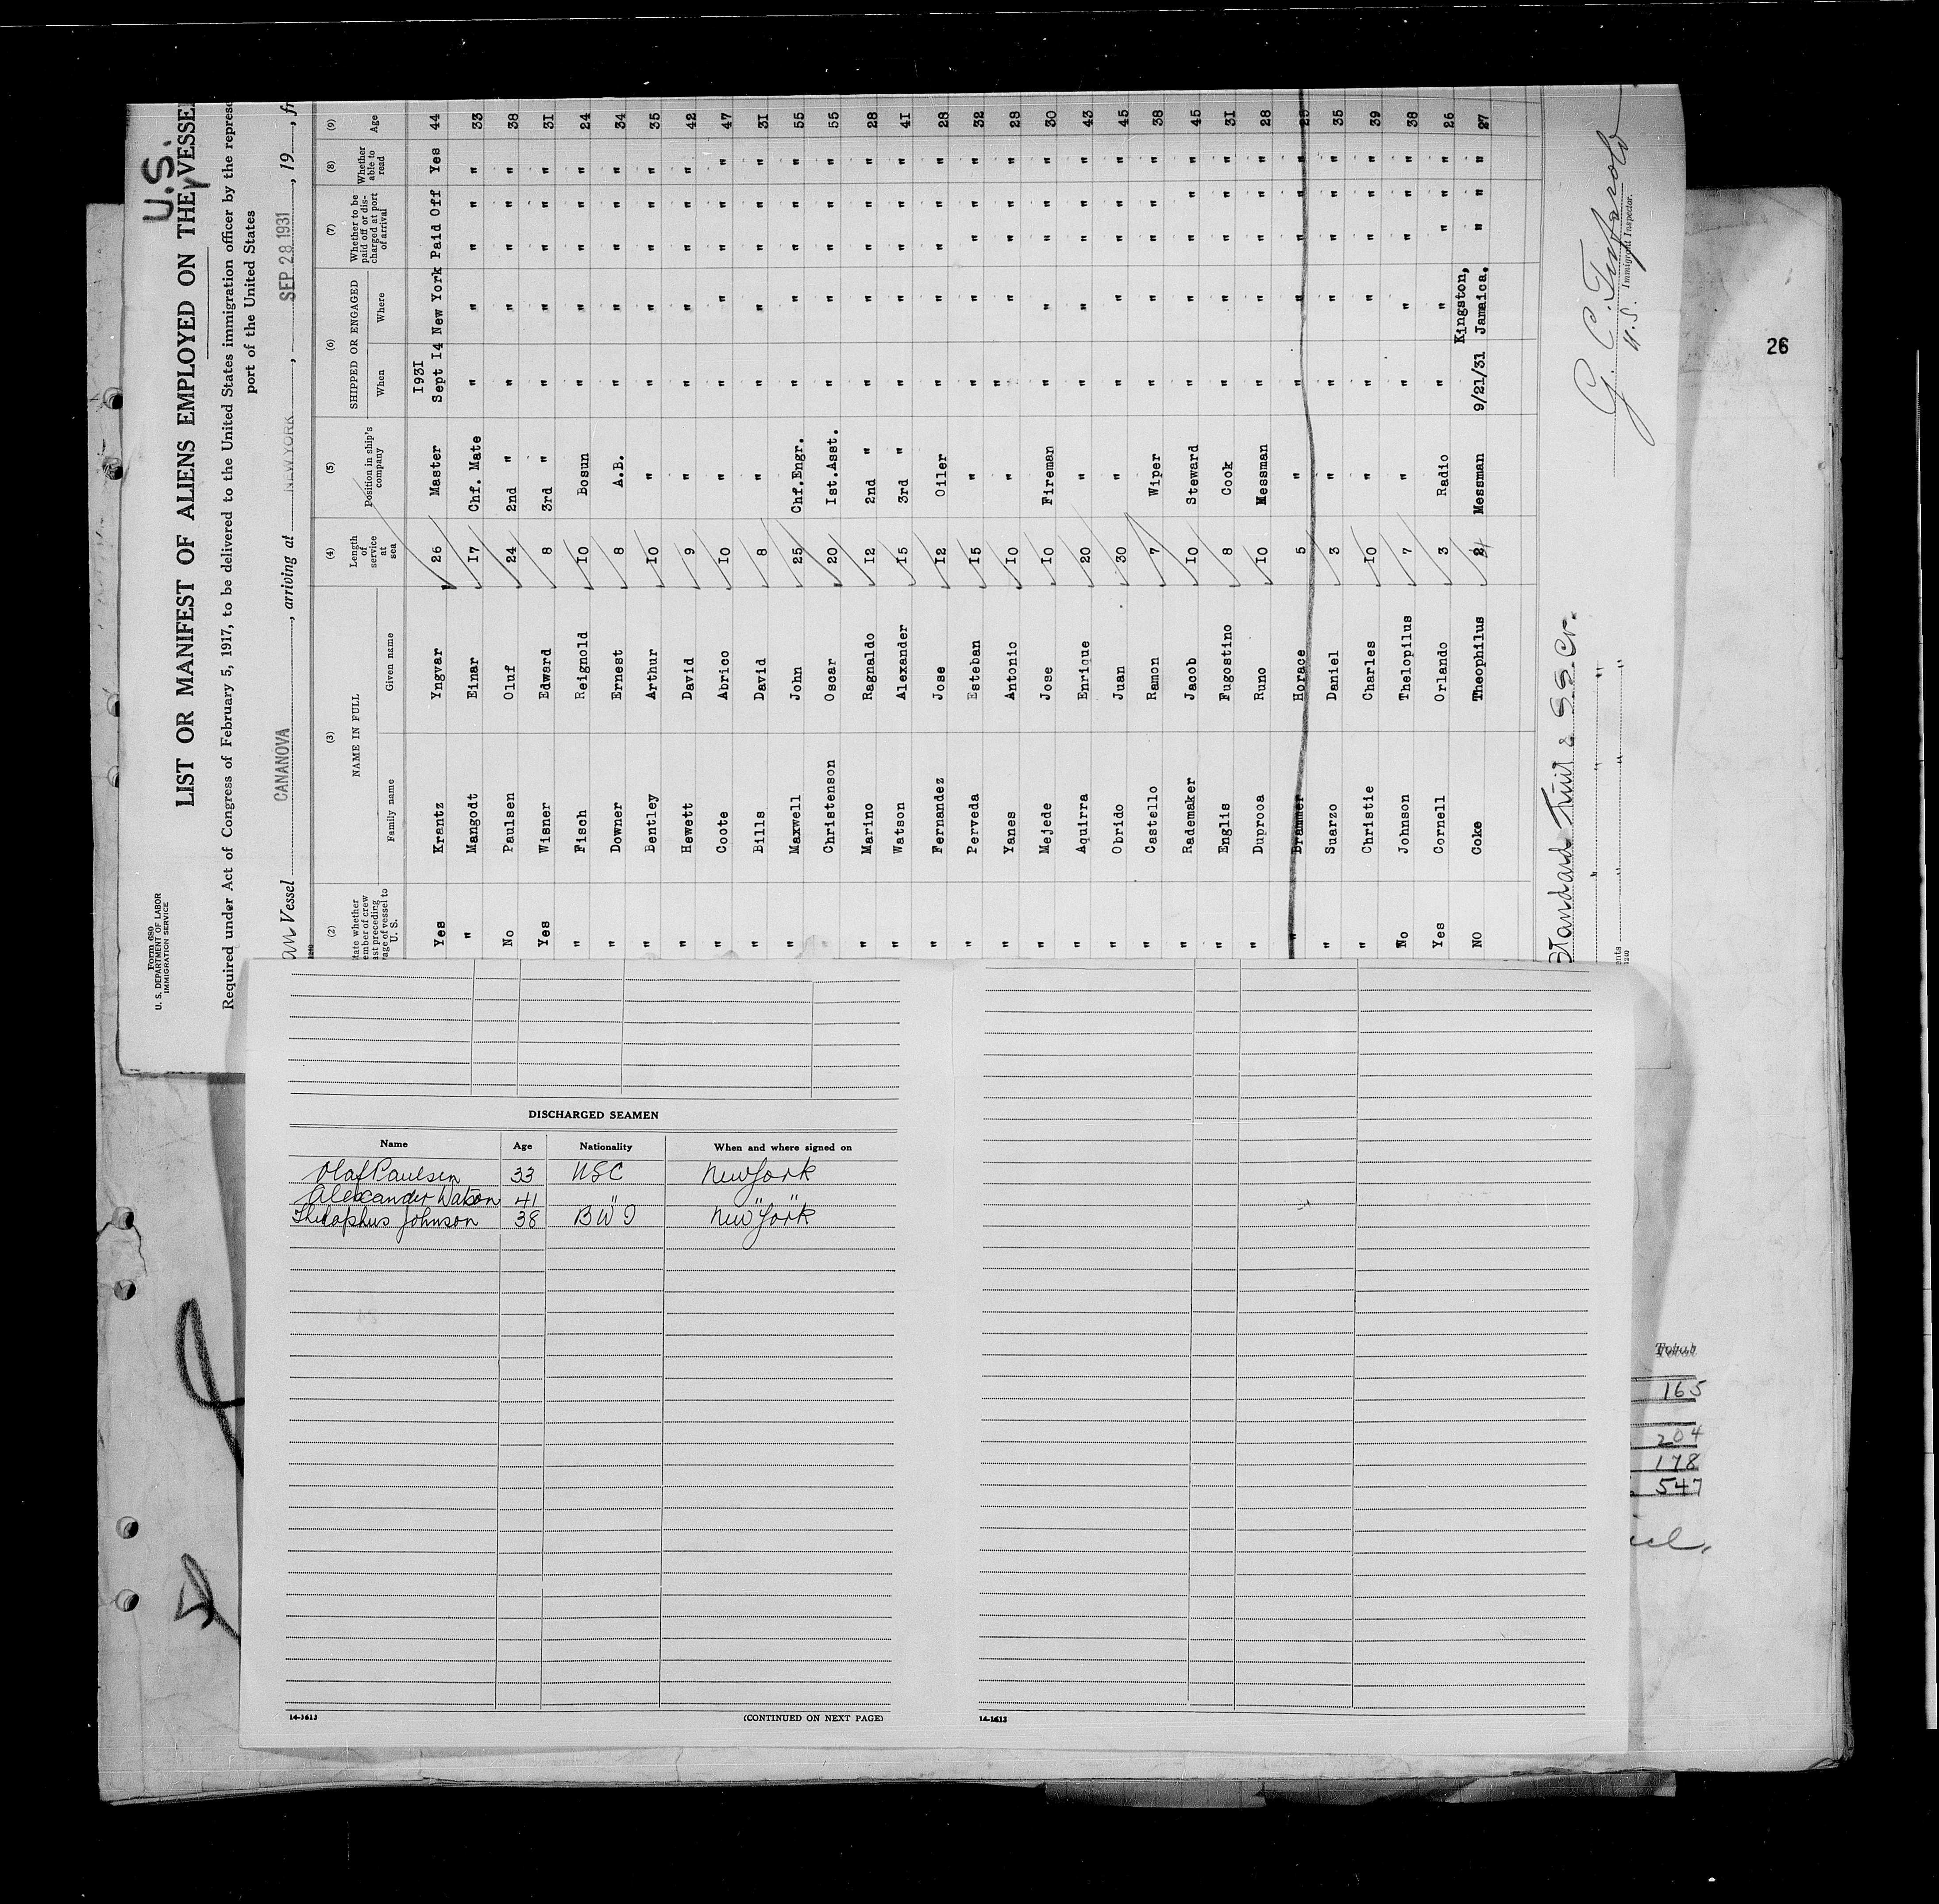 U.S.
Form 680
U. S. DEPARTMENT OF LABOR
IMMIGRATION SERVICE
LIST OR MANIFEST OF ALIENS EMPLOYED ON THE VESSE
Required under Act of Congress of February 5, 1917, to be delivered to the United States immigration officer by the represe
port of the United States
an Vessel CANANOVA, arriving at NEW YORK, SEP 28 1931, 19, fr
(2) (3) (4) (5) (6) (7) (8) (9)
NAME IN FULL Family name Given name Length of service at sea Position in ship's company SHIPPED OR ENGAGED When Where Whether to be paid off or discharged at port of arrival Whether able to read Age
1931
Yes Krantz Yngvar 26 Master Sept 14 New York Paid Off Yes 44
" Mangodt Einar 17 Chf. Mate " " " " " 33
No Paulsen Oluf 24 2nd " " " " " " 38
Yes Wisner Edwerd 8 3rd " " " " " " 31
" Fisch Reignold 10 Bosun " " " " " 24
" Downer Ernest 8 A.B. " " " " " 34
" Bentley Arthur 10 " " " " " " 35
" Hewett David 9 " " " " " " 42
" Coote Abrico 10 " " " " " " 47
" Bills David 8 " " " " " " 31
" Maxwell John 25 Chf.Engr. " " " " " 55
Christenson Oscar 20 1st.Asst. " " " " " 55
" Marino Ragnaldo 12 2nd " " " " " " 28
" Watson Alexander 15 3rd " " " " " " 41
" Fernandez Jose 12 Oiler " " " " " 28
" Perveda Esteban 15 " " " " " " 32
" Yanes Antonio 10 " " " " " " 28
" Mejede Jose 10 Fireman " " " " " 30
" Aquirra Enrique 20 " " " " " " 43
" Obrido Juan 30 " " " " " " 45
" Castello Ramon 7 Wiper " " " " " 38
" Rademaker Jacob 10 Steward " " " " " 45
" Englis Fugostino 8 Cook " " " " " 31
" Duprooa Runo 10 Messman " " " " " 28
" Brammer Horace 5 " " " " " "
" Suarzo Daniel 3 " " " " " " 35
" Christie Charles 10 " " " " " " 39
No Johnson Thelopilus 7 " " " " " " 38
Yes Cornell Orlando 3 Radio " " " " " 26
Kingston,
NO Coke Theophilus Messman 9/21/31 Jamaica. " " " 27
Standard Fruit & S.S. Co.
" " "
Immigrant Inspector.
26
DISCHARGED SEAMEN
Name Age Nationality When and where signed on
Olaf Paulsen 33 USC New York
Alexander Watson 41 " " "
Thelophus Johnson 38 B W I New York
14-1613 (CONTINUED ON NEXT PAGE) 14-1613
165
204
178
547